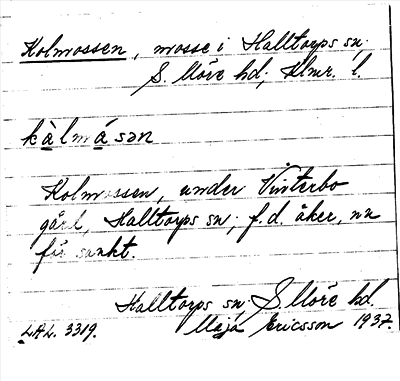 Kolmossen, mosse i Halltorps sn.
S. Möre hd; Klmr. l.
kàlmásən
Kolmossen, under Vinterbo
gård, Halltorps sn; f.d. åker, nu
för sankt.
Halltorps sn; S. Möre hd.
LAL. 3319. Maja Ericsson 1937.